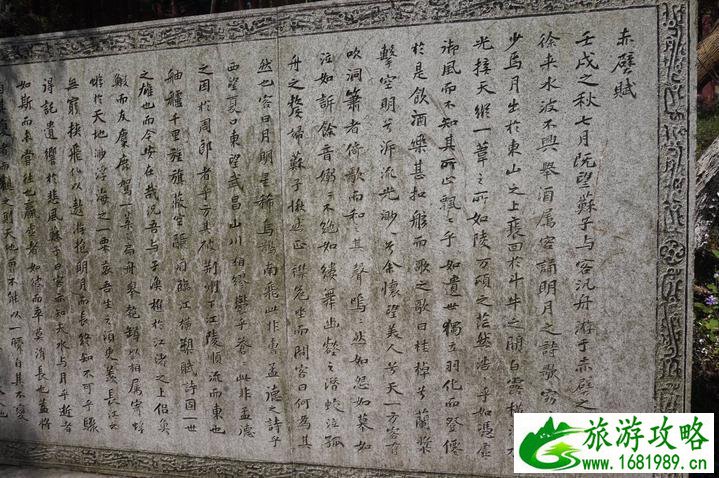 赤壁賦
壬戌之秋七月既望蘇子与客汎舟游于赤壁之
徐来水波不興舉酒属客誦明月之詩歌窈
少焉月出於東山之上裵回於斗牛之間白露横水
光接天縱一葦之所如陵万頃之茫然浩〻乎如憑虛
御風而不知其所止飄〻乎如遺世獨立羽化而登僊
於是飲酒樂甚扣舷而歌之歌曰桂棹兮蘭槳
擊空明兮泝流光渺〻兮余懷望美人兮天一方客有
吹洞簫者倚歌而和其聲嗚〻然如怨如慕如
泣如訴餘音嫋〻不絶如縷舞幽壑之潜蛟泣孤
舟之嫠婦蘇子愀然正襟危坐而問客曰何為其
然也客曰月明星稀烏鵲南飛此非曹孟德之詩乎
西望夏口東望武昌山川相繆鬱乎蒼〻此非孟德
之困於周郎者乎方其破荆州下江陵順流而東也
舳艫千里旌旗蔽空釃酒臨江横槊賦詩固一世
之雄也而今安在哉况吾与子漁樵於江渚之上侣魚
鰕而友麋鹿駕一葉之扁舟舉匏樽以相属寄蜉
蝣於天地渺浮海之一粟哀吾生之須臾羡長江之
無窮挟飛仙以遨遊抱明月而長終知不可乎驟
得託遺響於悲風蘇子曰客亦知夫水与月乎逝者
如斯而未嘗往也盈虚者如彼而卒莫消長也蓋將
自其變者而觀之則天地曾不能以一瞬自其不變
旅游攻略
www.1681989.cn